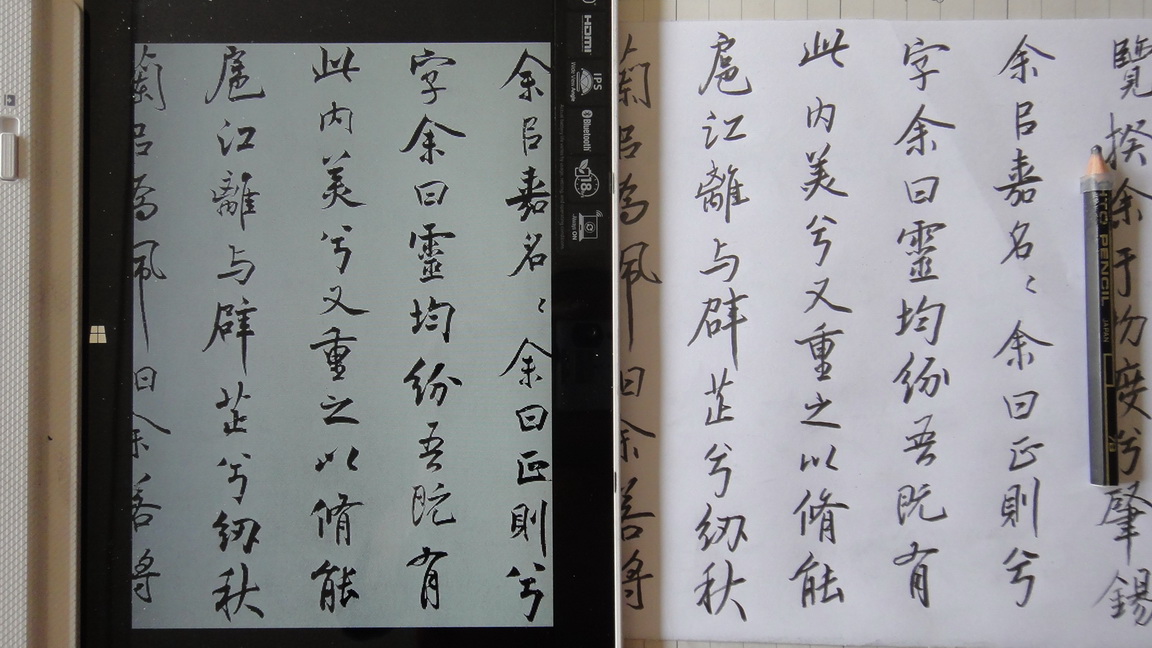 覽揆余于初度兮肇錫
余㠯嘉名〻余曰正則兮
字余曰靈均紛吾既有
此内美兮又重之以脩能
扈江離与辟芷兮紉秋
蘭㠯為佩曰余善將
余㠯嘉名〻余曰正則兮
字余曰靈均紛吾既有
此内美兮又重之以脩能
扈江離与辟芷兮紉秋
蘭㠯為佩曰余善將
HDMI
IPS
Bluetooth
PENCIL
JAPAN